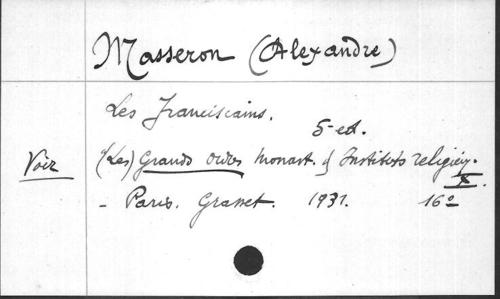 Masseron (Alexandre)
Les Franciscains.
5e ed.
Voir
(Les) Grands Ordres monast. & Instituts religieux.
X.
- Paris. Grasset. 1931. 16º